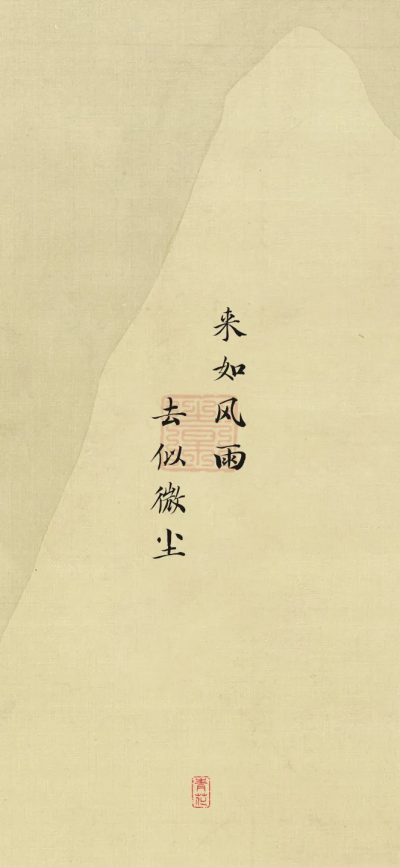 来如风雨
去似微尘
青花